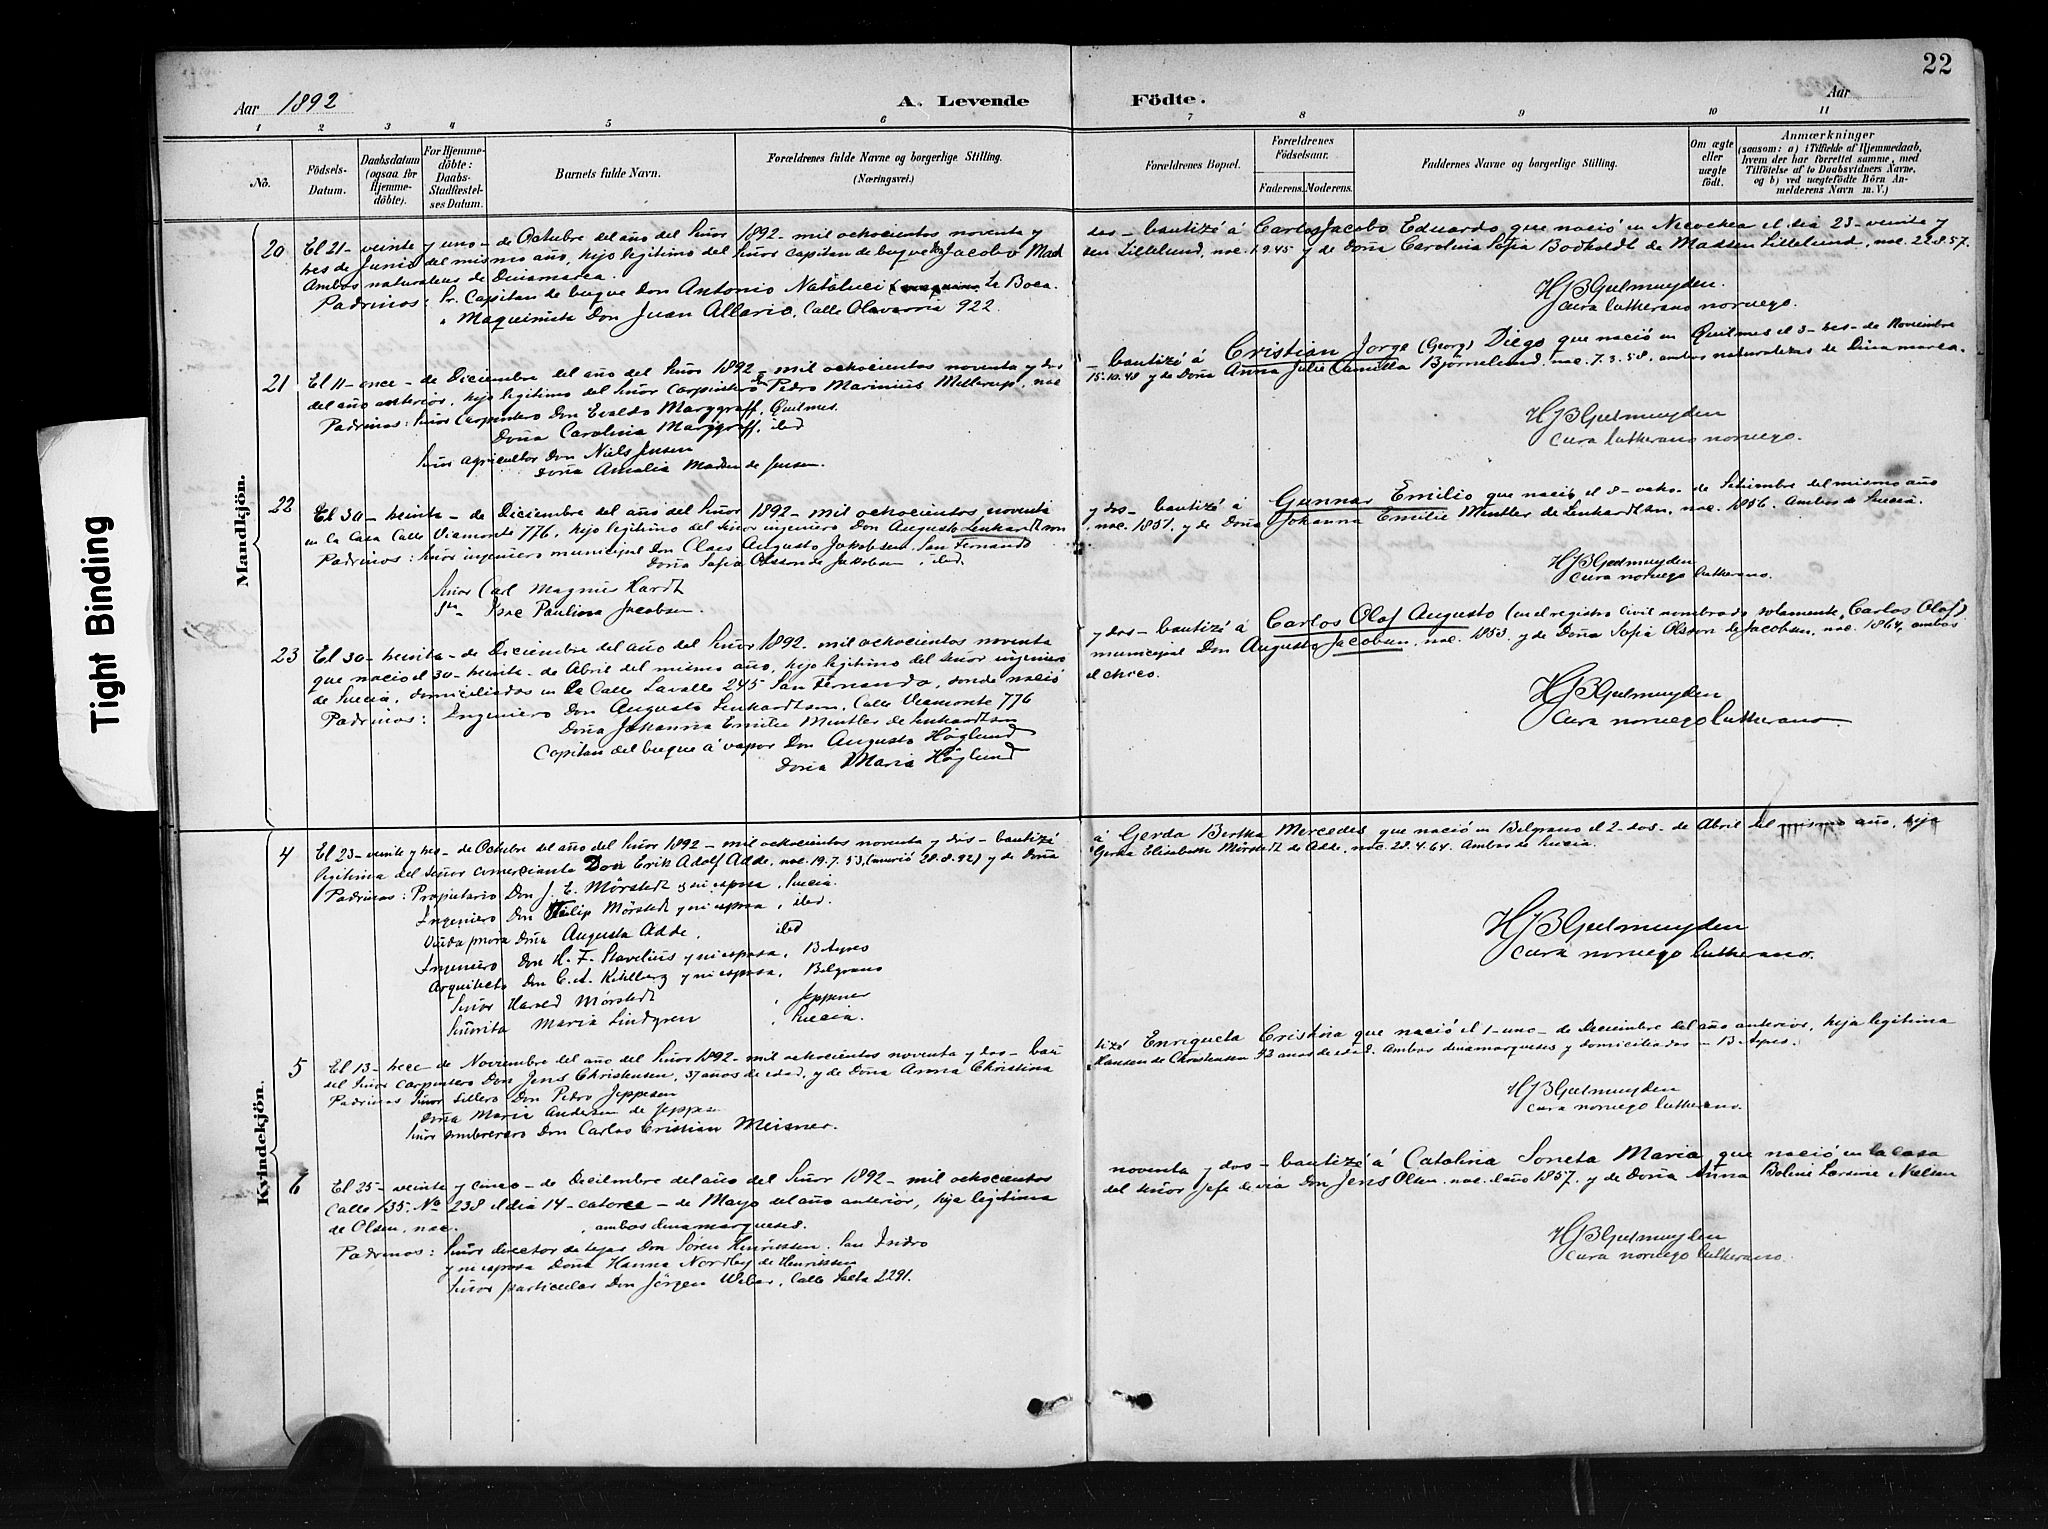 22
Aar 1892
A. Levende
Födte.
Aar
1 2 3 4 5 6 7 8 9 10 11
No.
Födsels-
Datum.
Daabsdatum
(ogsaa for
Hjemme-
döbte).
For Hjemme-
döbte:
Daabs-
Stadfæstel-
ses Datum.
Barnets fulde Navn.
Forældrenes fulde Navne og borgerlige Stilling.
(Næringsvei.)
Forældrenes Bopæl.
Forældrenes
Födselsaar.
Faderens. Moderens.
Faddernes Navne og borgerlige Stilling.
Om ægte
eller
uægte
født.
Anmærkninger
(saasom: a) i Tilfælde af Hjemmedaab,
hvem der har forrettet samme, med
Tilföielse af to Daabsvidners Navne,
og b) ved uægtefödte Börn An-
melderens Navn m. V.)
Tight Binding
Mandkjön.
20 El 21- veinte y uno- de Octubre del año del Señor 1892- mil ochocientos noventa y dos- bautizé á Carlos Jacobo Eduardo que nació en el dia 23- veinte y
tres de Junio del mismo año, hijo legitimo del Señor capitan de buque Jacobo Madsen Lillelund, nac. 1.9.45 y de Doña Carolina Sofia Bodholdt de Madsen Lillelund, nac. 22.8.57.
Ambos naturales de Dinamarca.
Padrinos: Sr. Capitan de buque Don Antonio Nataluci La Boca.
" Maquinista Don Juan Allario, Calle Olavarria 922.
HJBGulmuyden.
Cura lutherano noruego.
21 El 11- once- de Diciembre del año del Señor 1892- mil ochocientos noventa y dos - bautizé á Cristian Jorge (Georg) Diego que nació en Quilmes el 3- tres- de Noviembre
del año anterior, hijo legitimo del Señor carpintero Dn Pedro Marinius Mellerup, nac 15.10.48 y de Doña Anna Julie Camilla Björnelund, nac. 7.3.58, ambos naturales de Dinamarca.
Padrinos: Señor Carpintero Don Evaldo Marggraff, Quilmes.
Doña Carolina Marggraff, ibid
Señor agricultor Don Niels Jensen
Doña Amalia Madsen de Jensen.
HJBGulmuyden
cura lutherano noruego.
22 El 30- treinta- de Diciembre del año del Señor 1892- mil ochocientos noventa y dos- bautizé á Gunnar Emilio que nació el 8- ocho- de Setiembre del mismo año
en la Casa Calle Viamonte 776, hijo legitimo del Señor ingeniero Don Augusto Lenhardtson, nac. 1851, y de Doña Johanna Emilie Mentler de Lenhardtson, nac. 1856. Ambos de Suecia.
Padrinos: Señor ingeniero municipal Don Claes Augusto Jakobsen, San Fernando
Doña Sofia Olsson de Jakobsen, ibid.
Señor Carl Magnus Hardt
Paulina Jacobsen.
HJBGulmuyden
cura noruego lutherano.
23 El 30- treinta- de Diciembre del año del Señor 1892- mil ochocientos noventa y dos- bautizé á Carlos Olof Augusto (en el registro Civil nombrado solamente "Carlos Olof)
que nació el 30- treinta- de Abril del mismo año, hijo legitimo del Señor ingeniero municipal Don Augusto Jacobsen, nac. 1853, y de Doña Sofia Olsson de Jacobsen, nac. 1864, ambos
de Suecia, domiciliados en la Calle Lavalle 245 San Fernando, donde nació el chico.
Padrinos: Ingeniero Don Augusto Lenhardtson, Calle Viamonte 776
Doña Johanna Emilia Mentler de Lenhardtson
Capitan del buque á vapor Don Augusto Höglund
Doña Maria Höglund
HJBGulmuyden
cura noruego lutherano.
Kvindekjön.
4 El 23- veinte y tres- de Octubre del año del Señor 1892- mil ochocientos noventa y dos- bautizé á Gerda Bertha Mercedes que nació en Belgrano el 2- dos- de Abril del mismo año, hija
legitima del Señor comerciante Don Erik Adolf Adde, nac. 19.7.53, (murió 28.8.92) y de Doña Gerda Elisabeth Mörstedt de Adde, nac. 28.4.64. Ambos de Suecia.
Padrinos: Propietario Don J. E. Mörstedt y mi esposa, Suecia.
Ingeniero Don Filip Mörstedt y mi esposa, ibid.
Viuda Doña Augusta Adde, ibid
Ingeniero Don H. F. Stavelius y mi esposa, B Ayres
Arquitecto Don C. A. Kihlberg y mi esposa, Belgrano
Señor Harald Mörstedt, Jeppener
Señorita Maria Lindgren, Suecia.
HJBGulmuyden
cura noruego lutherano.
5 El 13- trece- de Noviembre del año del Señor 1892- mil ochocientos noventa y dos- bautizé Enriqueta Cristina que nació el 1- uno- de Diciembre del año anterior, hija legitima
del Señor carpintero Don Jens Christensen, 37 años de edad, y de Doña Anna Christina Hansen de Christensen 33 años de edad. Ambos dinamarqueses y domiciliados en B Ayres.
Padrinos Señor sillero Don Pedro Jeppesen
Doña Maria Andersen de Jeppesen
Señor sombrerero Don Carlos Cristian Meisner.
HJBGulmuyden
cura noruego lutherano.
6 El 25- veinte y cinco- de Diciembre del año del Señor 1892- mil ochocientos noventa y dos- bautizé á Catalina Soneta Maria que nació en la casa
Calle 135, No 238 el dia 14- catorce- de Mayo del año anterior, hija legitima del Señor Jefe de via Don Jens Olsen, nac. el año 1857, y de Doña Anna Boline Larsine Nielsen
de Olsen, nac. , ambos dinamarqueses.
Padrinos: Señor director de tejas Don Søren Henrikssen, San Isidro
y mi esposa Doña Hanna Nordby de Henrikssen
Señor particular Don Jörgen Weber, Calle Salta 2291.
HJBGulmuyden
cura noruego lutherano.